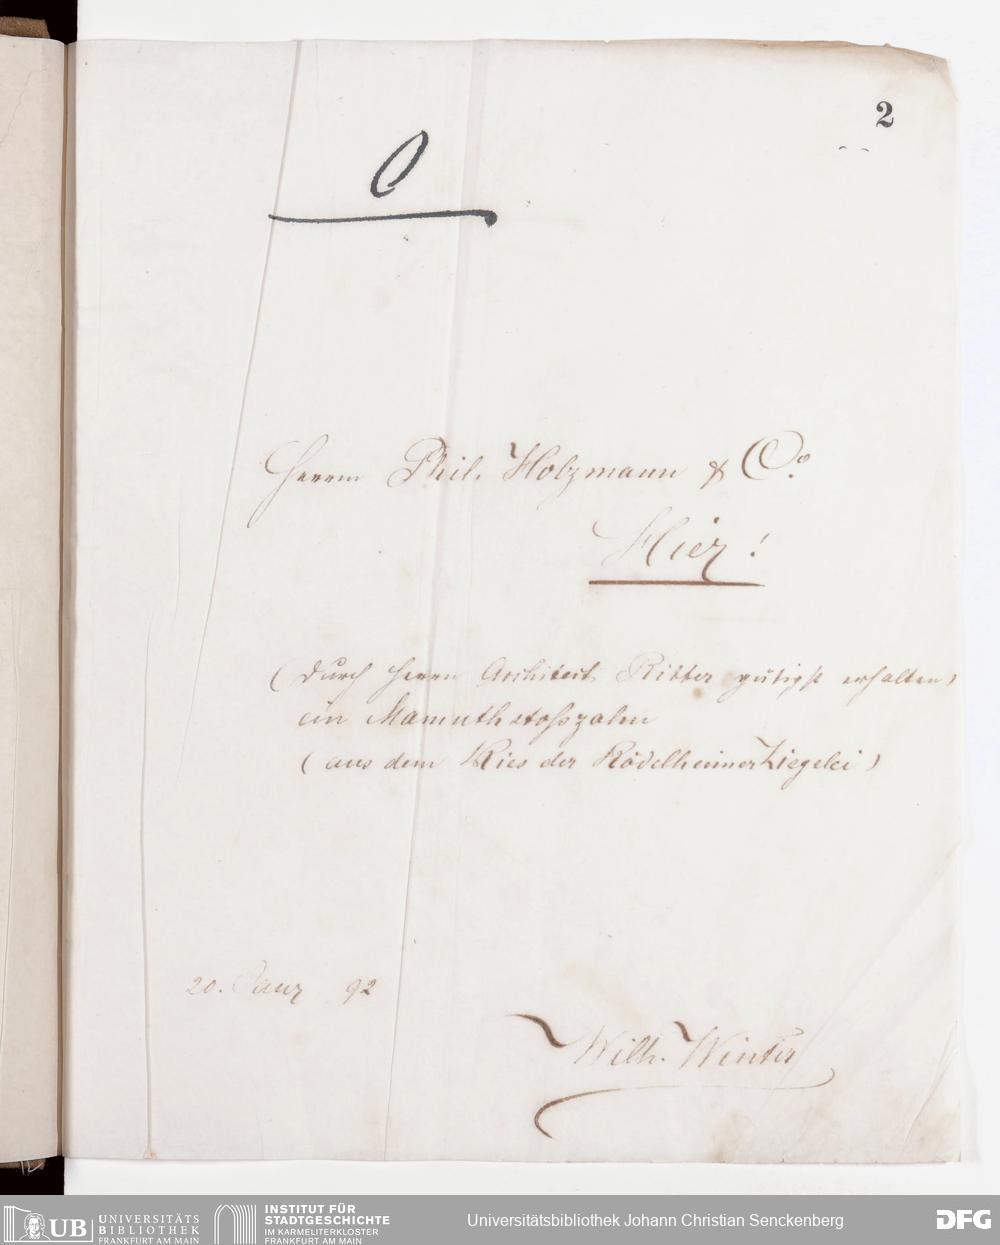 2
O
Herrn Phil. Holzmann & Co.
Hier!
(durch Herrn Architect Ritter gütigst erhalten)
ein Mamuthstosszahn
(aus dem Kies der Rödelheimer Ziegelei)
20. Janr 92
Wilh. Winter
UB UNIVERSITÄTS
BIBLIOTHEK
FRANKFURT AM MAIN
INSTITUT FÜR
STADTGESCHICHTE
IM KARMELITERKLOSTER
FRANKFURT AM MAIN
Universitätsbibliothek Johann Christian Senckenberg
DFG